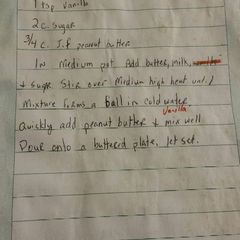 1 Tsp Vanilla
2 c. Sugar
3/4 c. J.f peanut butter
In medium pot Add butter, milk,
+ sugar Stir over Medium high heat until
Mixture forms a ball in cold water
Vanilla
Quickly add peanut butter & mix well
Pour onto a buttered plate, let set.